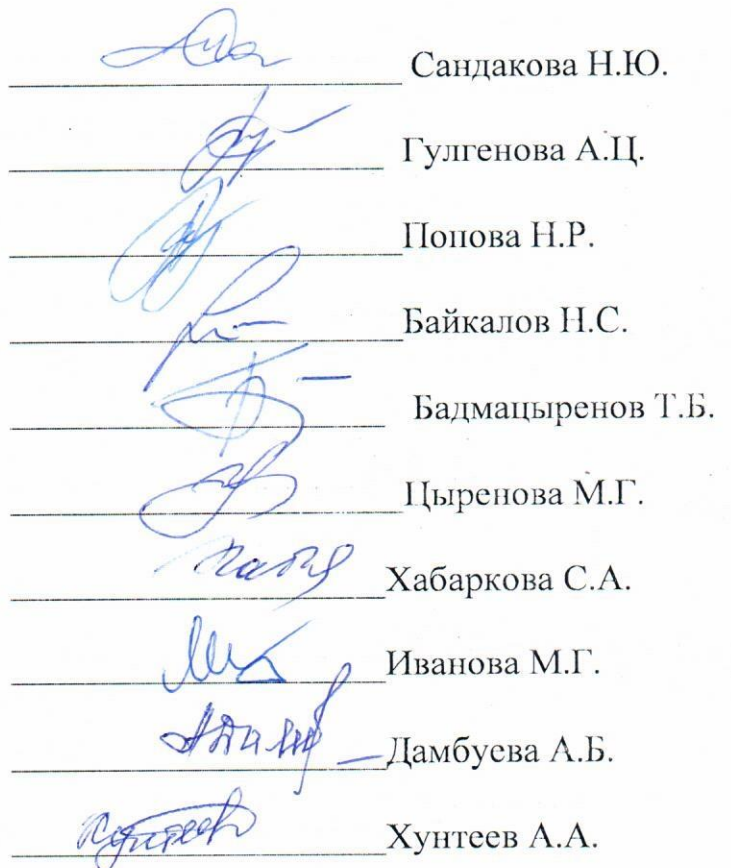 Сандакова Н.Ю.
Гулгенова А.Ц.
Попова Н.Р.
Байкалов Н.С.
Бадмацыренов Т.Б.
Цыренова М.Г.
Хабаркова С.А.
Иванова М.Г.
Дамбуева А.Б.
Хунтеев А.А.